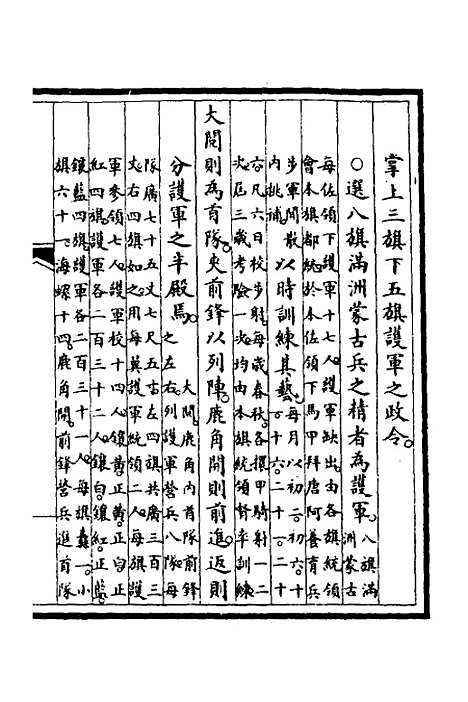 掌上三旗下五旗護軍之政令。
○選八旗滿洲蒙古兵之精者為護軍。八旗滿洲蒙古
每佐領下護軍十七人護軍缺出由各旗統領
會本旗都統於本佐領下馬甲拜唐阿養育兵
步軍閒散內挑補以時訓練其藝。每月以初二。初六。十
○十六。二十。二十
六凡六日校步射每歲春秋各擐甲騎射一二
次屆三歲考驗一次均由本旗統領督率訓練
大閱則為首隊夾前鋒以列陣鹿角開則前進返則
分護軍之半殿焉。大閱鹿角內首隊前鋒之左右列護軍營兵八隊每
隊廣七十五丈七尺五寸左四旗共廣三百三
丈右四旗如之用每翼護軍統領二人每旗護
軍參領七人護軍校十四人鑲黃正黃正白正
紅四旗護軍各二百三十二人鑲白鑲紅正藍
鑲藍四旗護軍各二百三十一人每旗纛一小
旗六十一海螺十四鹿角開前鋒營兵進首隊